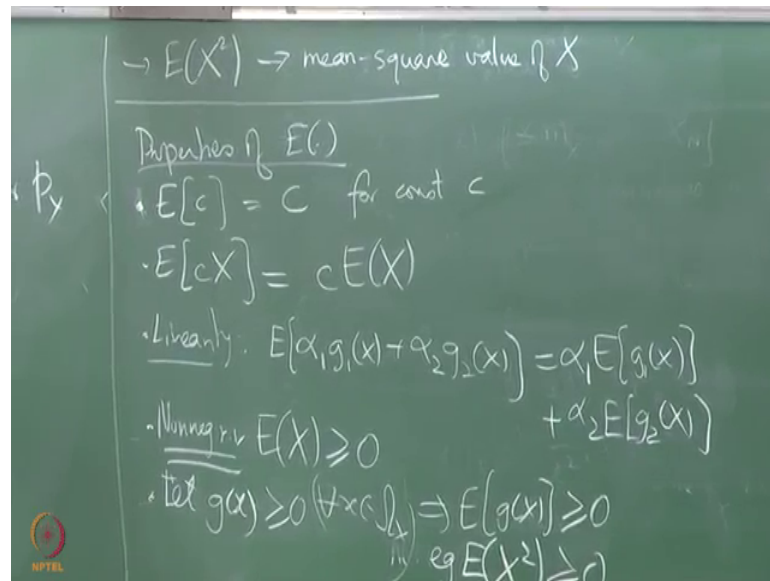 → E(X²) → mean-square value of X
Properties of E(.)
p_Y
· E[c] = C for const c
· E[cX] = c E(X)
· Linearity: E[α₁g₁(X) + α₂g₂(X)] = α₁E[g₁(X)]
+ α₂E[g₂(X)]
· Nonneg r.v E(X) ≥ 0
· Let g(x) ≥ 0 (∀x∈Ωₓ) ⇒ E[g(X)] ≥ 0
eg E(X²) ≥ 0
NPTEL